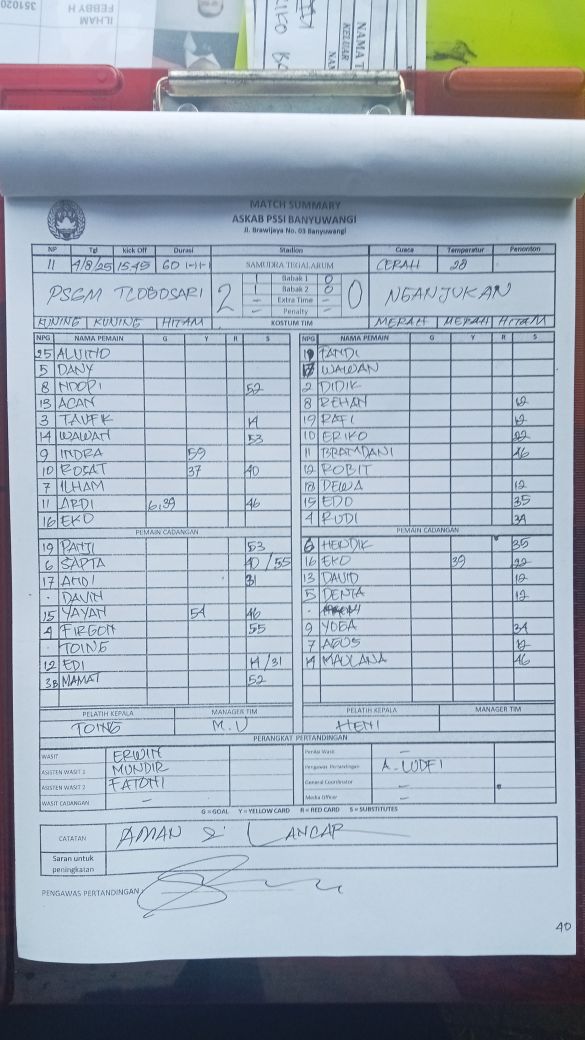 351020
FEBBY H
ILHAM
NAMA T
KELUAR
MATCH SUMMARY
ASKAB PSSI BANYUWANGI
Jl. Brawijaya No. 03 Banyuwangi
NP Tgl Kick Off Durasi Stadion Cuaca Temperatur Penonton
11 4/8/25 15.45 60 SAMUDRA TEGALARUM CERAH 28
PSGM TLOGOSARI 2 0 NGANJUKAN
1 Babak 1 0
1 Babak 2 0
- Extra Time -
- Penalty -
KUNING KUNING HITAM KOSTUM TIM MERAH MERAH HITAM
NPG NAMA PEMAIN G Y R S NPG NAMA PEMAIN G Y R S
25 ALVINO 1 TANDI
5 DANY 17 WAWAN
8 NDOPI 52 2 DIDIK
13 ACAN 8 REHAN 12
3 TAUFIK 14 19 RAFI 12
14 WAWAN 53 10 ERIKO 22
9 INDRA 59 11 BRAMDANI 46
10 ROSAT 37 40 12 ROBIT
7 ILHAM 18 DEWA 12
11 ARDI 6,39 46 15 EDO 35
16 EKO 4 RUDI 34
PEMAIN CADANGAN PEMAIN CADANGAN
19 PANJI 53 6 HENDIK 35
6 SAPTA 40/55 16 EKO 39 22
17 ANDI 31 13 DAVID 12
. DAVIN 5 DENTA 12
15 YAYAN 54 46
4 FIRGON 55 9 YOGA 34
. TOING 7 AGUS 12
12 EDI 14/31 14 MAULANA 46
38 MAMAT 52
PELATIH KEPALA MANAGER TIM PELATIH KEPALA MANAGER TIM
TOING M.U HENI
PERANGKAT PERTANDINGAN
WASIT ERWIN Penilai Wasit -
ASISTEN WASIT 1 MUNDIR Pengawas Pertandingan A. LUDFI
ASISTEN WASIT 2 FATONI General Coordinator -
WASIT CADANGAN - Media Officer -
G = GOAL Y = YELLOW CARD R = RED CARD S = SUBSTITUTES
CATATAN AMAN & LANCAR
Saran untuk
peningkatan
PENGAWAS PERTANDINGAN
40